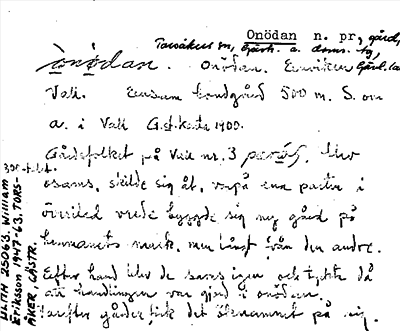 Onödan n. pr, gård,
Torsåkers sn, Gästr. a. doms. tg,
ònö̀dan. Onödan. Enviken Gävl. la
Vall. Ensam bondgård 500 m. S. om
a. i Vall G.st.karta 1900.
Gårdsfolket på Vall nr. 3 blev
osams, skilde sig åt, varpå ena partiet i
överilad vrede byggde sig ny gård på
hemmanets mark, men långt från den andre.
Efter hand blev de sams igen och tyckte då
att handlingen var gjord i onödan.
Därefter gården fick det öknamnet på sig.
300-talet.
ULMA 25063. William
Eriksson 1947-63. TORS-
ÅKER, GÄSTR.